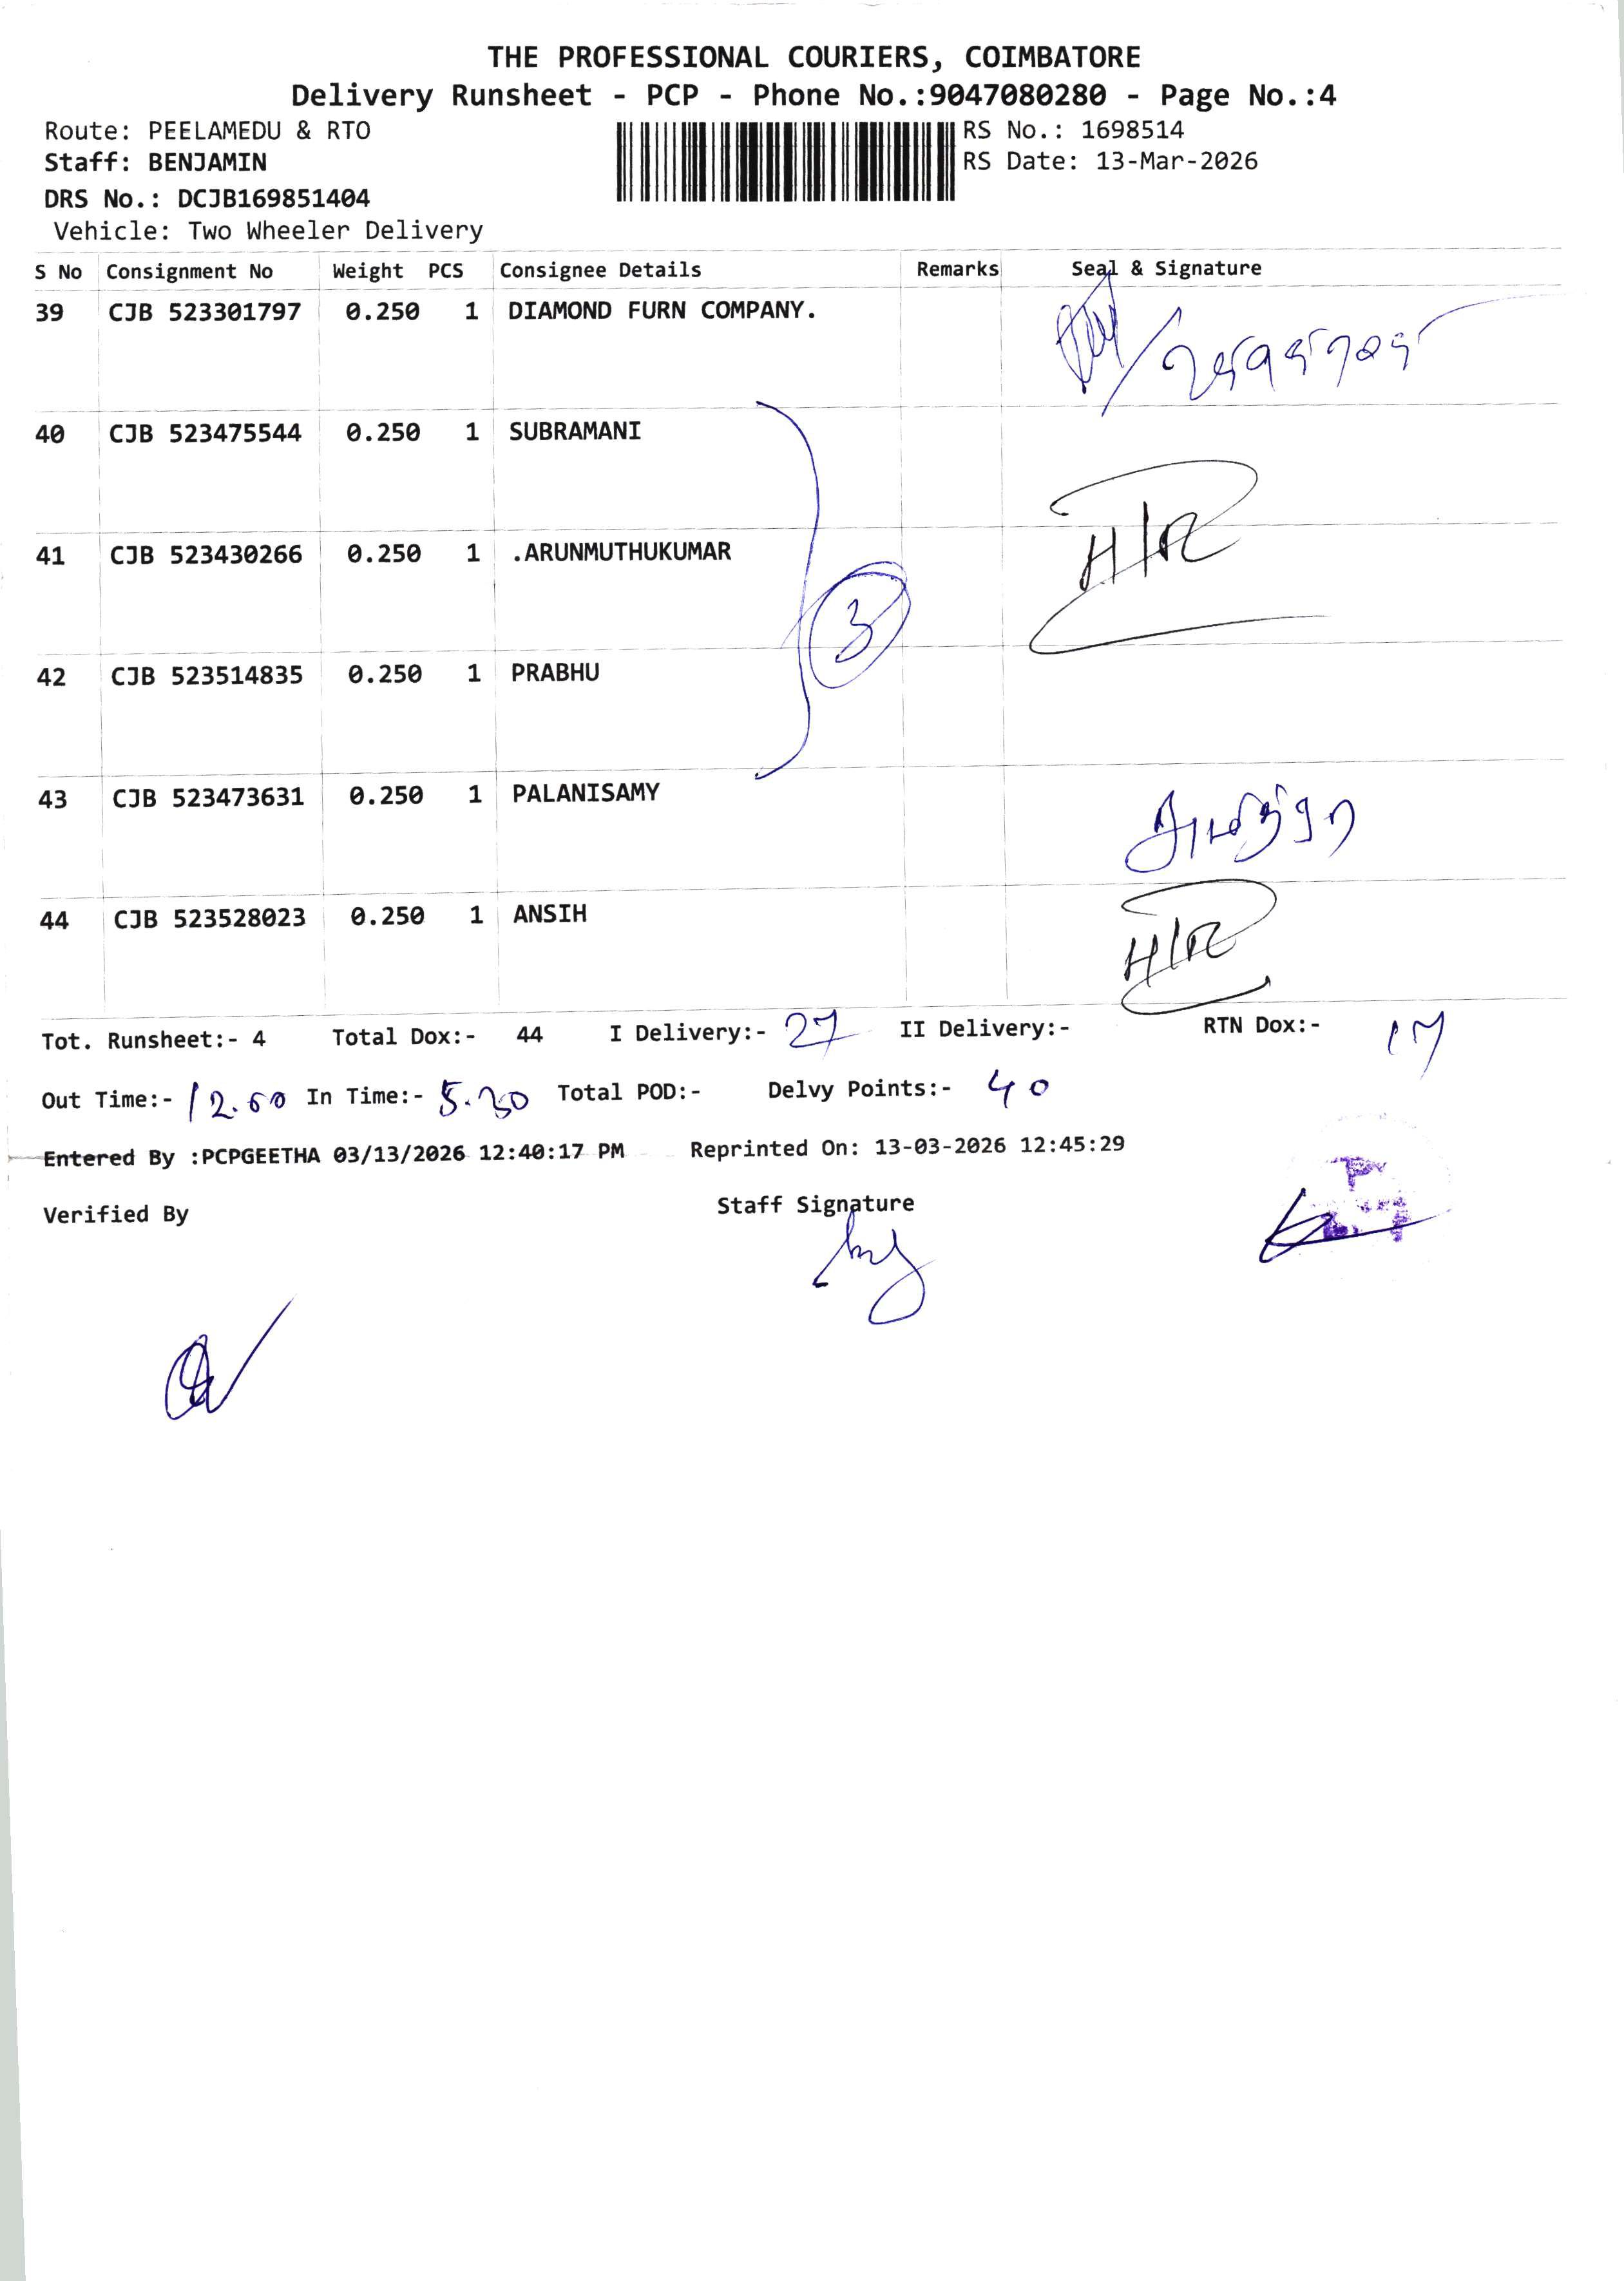 THE PROFESSIONAL COURIERS, COIMBATORE
Delivery Runsheet - PCP - Phone No.:9047080280 - Page No.:4
Route: PEELAMEDU & RTO
RS No.: 1698514
Staff: BENJAMIN
RS Date: 13-Mar-2026
DRS No.: DCJB169851404
Vehicle: Two Wheeler Delivery
S No Consignment No Weight PCS Consignee Details Remarks Seal & Signature
39 CJB 523301797 0.250 1 DIAMOND FURN COMPANY.
40 CJB 523475544 0.250 1 SUBRAMANI
41 CJB 523430266 0.250 1 .ARUNMUTHUKUMAR H/R
3
42 CJB 523514835 0.250 1 PRABHU
43 CJB 523473631 0.250 1 PALANISAMY
44 CJB 523528023 0.250 1 ANSIH H/R
Tot. Runsheet:- 4 Total Dox:- 44 I Delivery:- 27 II Delivery:- RTN Dox:- 17
Out Time:- In Time:- 5.30 Total POD:- Delvy Points:- 40
Entered By :PCPGEETHA 03/13/2026 12:40:17 PM Reprinted On: 13-03-2026 12:45:29
Verified By Staff Signature